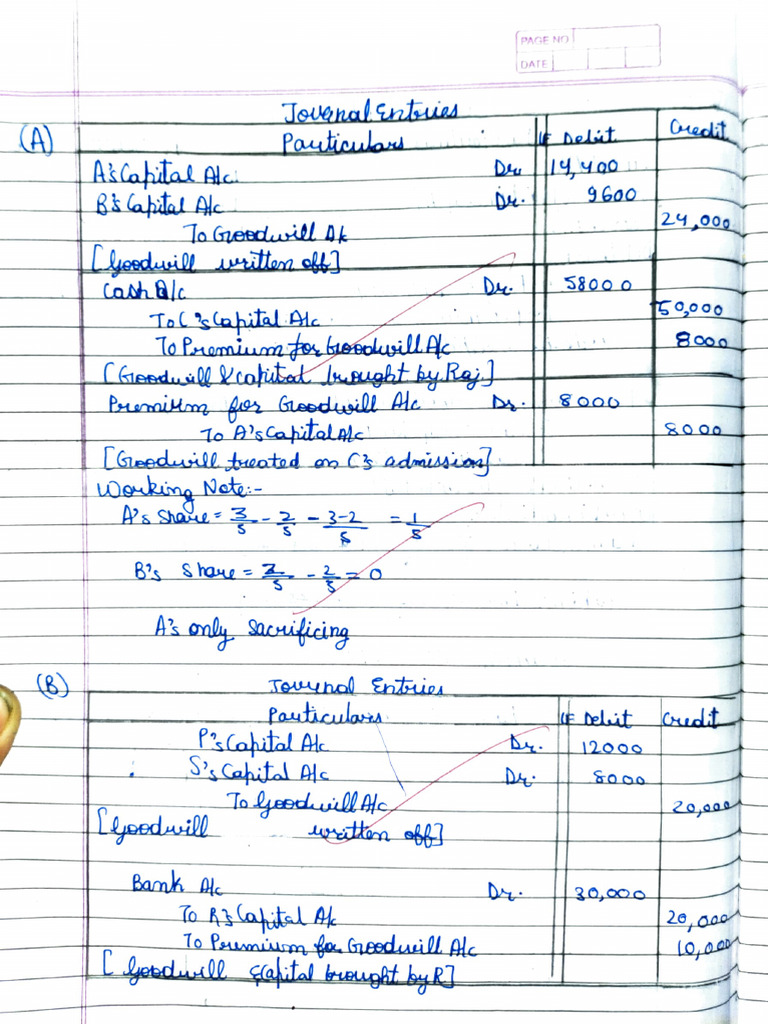 PAGE NO
DATE
Journal Entries
(A) Particulars LF Debit Credit
A's Capital A/c Dr. 14,400
B's Capital A/c Dr. 9600
To Goodwill A/c 24,000
[Goodwill written off]
Cash A/c Dr. 58000
To C's Capital A/c 50,000
To Premium for Goodwill A/c 8000
[Goodwill & capital brought by Raj.]
Premium for Goodwill A/c Dr. 8000
To A's Capital A/c 8000
[Goodwill treated on C's admission]
Working Note:-
A's Share = 3/5 - 2/5 - 3-2/5 = 1/5
B's Share = 2/5 - 2/5 = 0
A's only Sacrificing
(B) Journal Entries
Particulars LF Debit Credit
P's Capital A/c Dr. 12000
S's Capital A/c Dr. 8000
To Goodwill A/c 20,000
[Goodwill written off]
Bank A/c Dr. 30,000
To R's Capital A/c 20,000
To Premium for Goodwill A/c 10,000
[Goodwill & Capital brought by R]